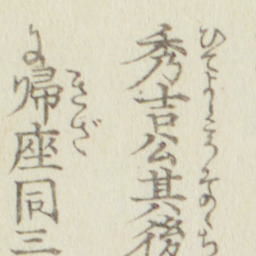 秀吉公其後
ひでよしこうそのゝち
に帰座同三
きざ